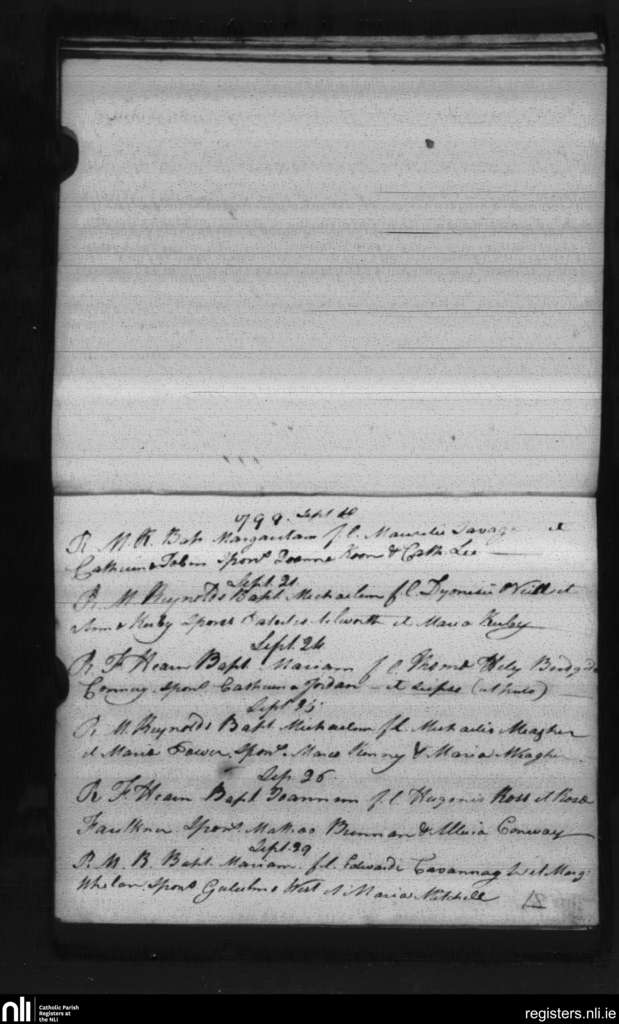 799. Sept
R. M. R. Bapt Margaritam f.l. Mauritii Savage et
Catherina Tobin Spons Joanne & Cath. Lee
Sept. 21
R. M. Reynolds Bapt Michaelem f.l. Dyonisii et
Kirby Spons et Maria Kirby
Sept. 24
R F Hearn Bapt Mariam f l Hely
Spons Catherina Jordan
Sept 25
R. M. Reynolds Bapt Michaelem f.l. Michaelis Meagher
et Maria Power. Spons. Kenny & Maria Meagher
Sep. 26.
R F. Hearn Bapt Joannem f.l Hugonis Ross et Rosa
Faulkner. Spons Brennan & Conway
Sept. 29
R. M. R. Bapt Mariam. f.l. Edwardi Cavannagh et Marg.
Whelan. Spons Gulielmo West et Maria Mitchell
nli
Catholic Parish
Registers at
the NLI
registers.nli.ie